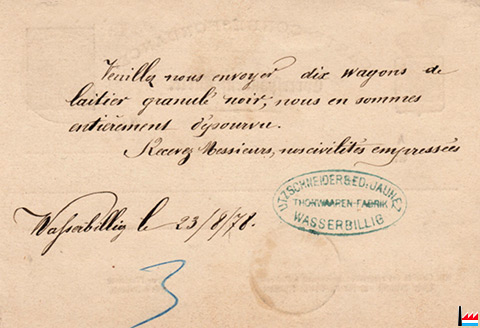 Veuillez nous envoyer dix wagons de
laitier granulé noir; nous en sommes
entièrement dépourvu.
Recevez Messieurs, nos civilités empressées
UTZSCHNEIDER & ED. JAUNEZ
THONWAAREN-FABRIK
WASSERBILLIG
Wasserbillig le 23/8/78.
3